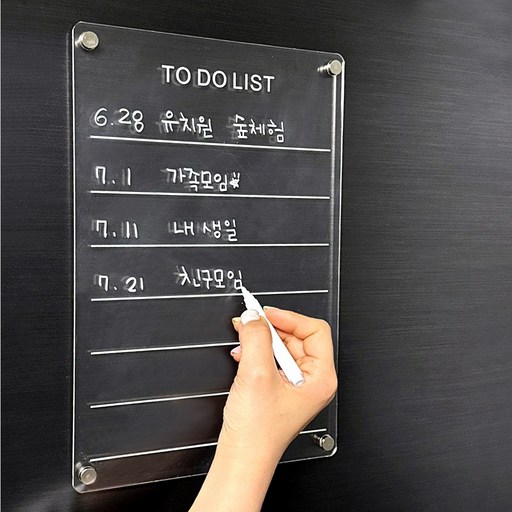 TO DO LIST
6.28 유치원 숲체험
7.1 가족모임
7.11 내 생일
7.21 친구모임